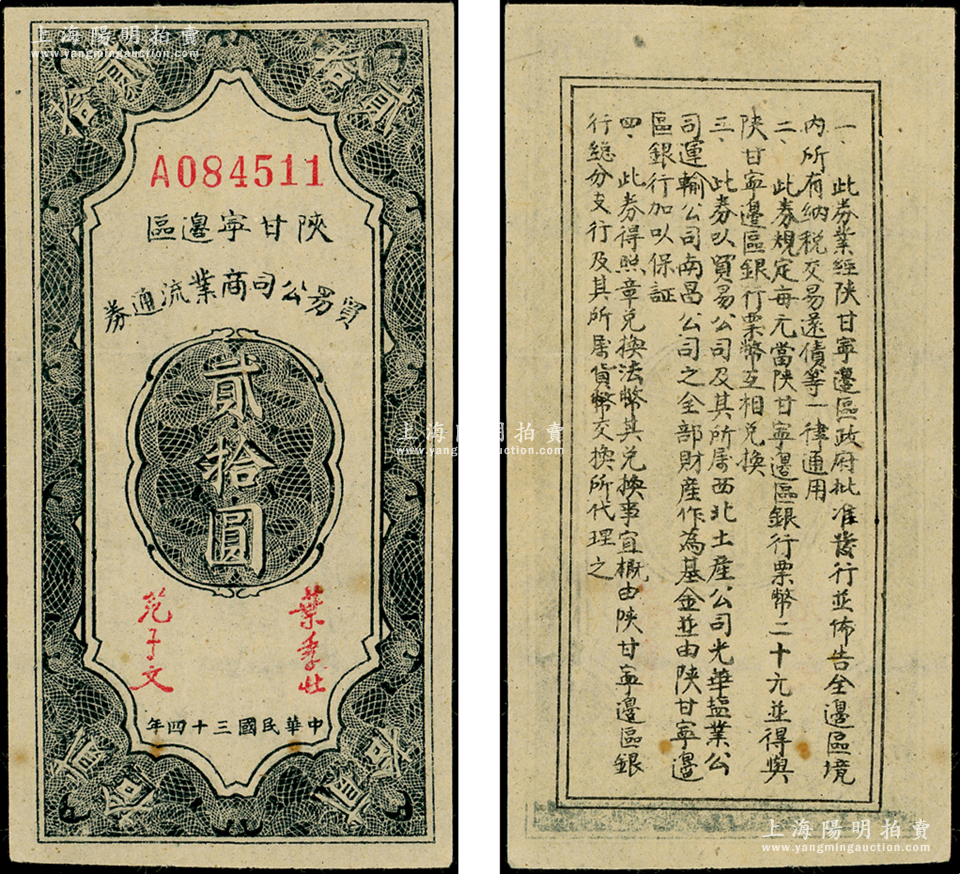 上海陽明拍賣
www.yangmingauction.com
貳拾
A084511
陝甘寧邊區
貿易公司商業流通券
貳拾圓
葉季壯
范子文
中華民國三十四年
一、此券業經陝甘寧邊區政府批准發行並佈告全邊區境
內所有納稅交易還債等一律通用
二、此券規定每元當陝甘寧邊區銀行票幣二十元並得與
陝甘寧邊區銀行票幣互相兌換
三、此券以貿易公司及其所屬西北土產公司光華塩業公
司運輸公司南昌公司之全部財產作為基金並由陝甘寧邊
區銀行加以保証
四、此券得照章兌換法幣其兌換事宜概由陝甘寧邊區銀
行總分支行及其所屬貨幣交換所代理之
上海陽明拍賣
www.yangmingauction.com
上海陽明拍賣
www.yangmingauction.com